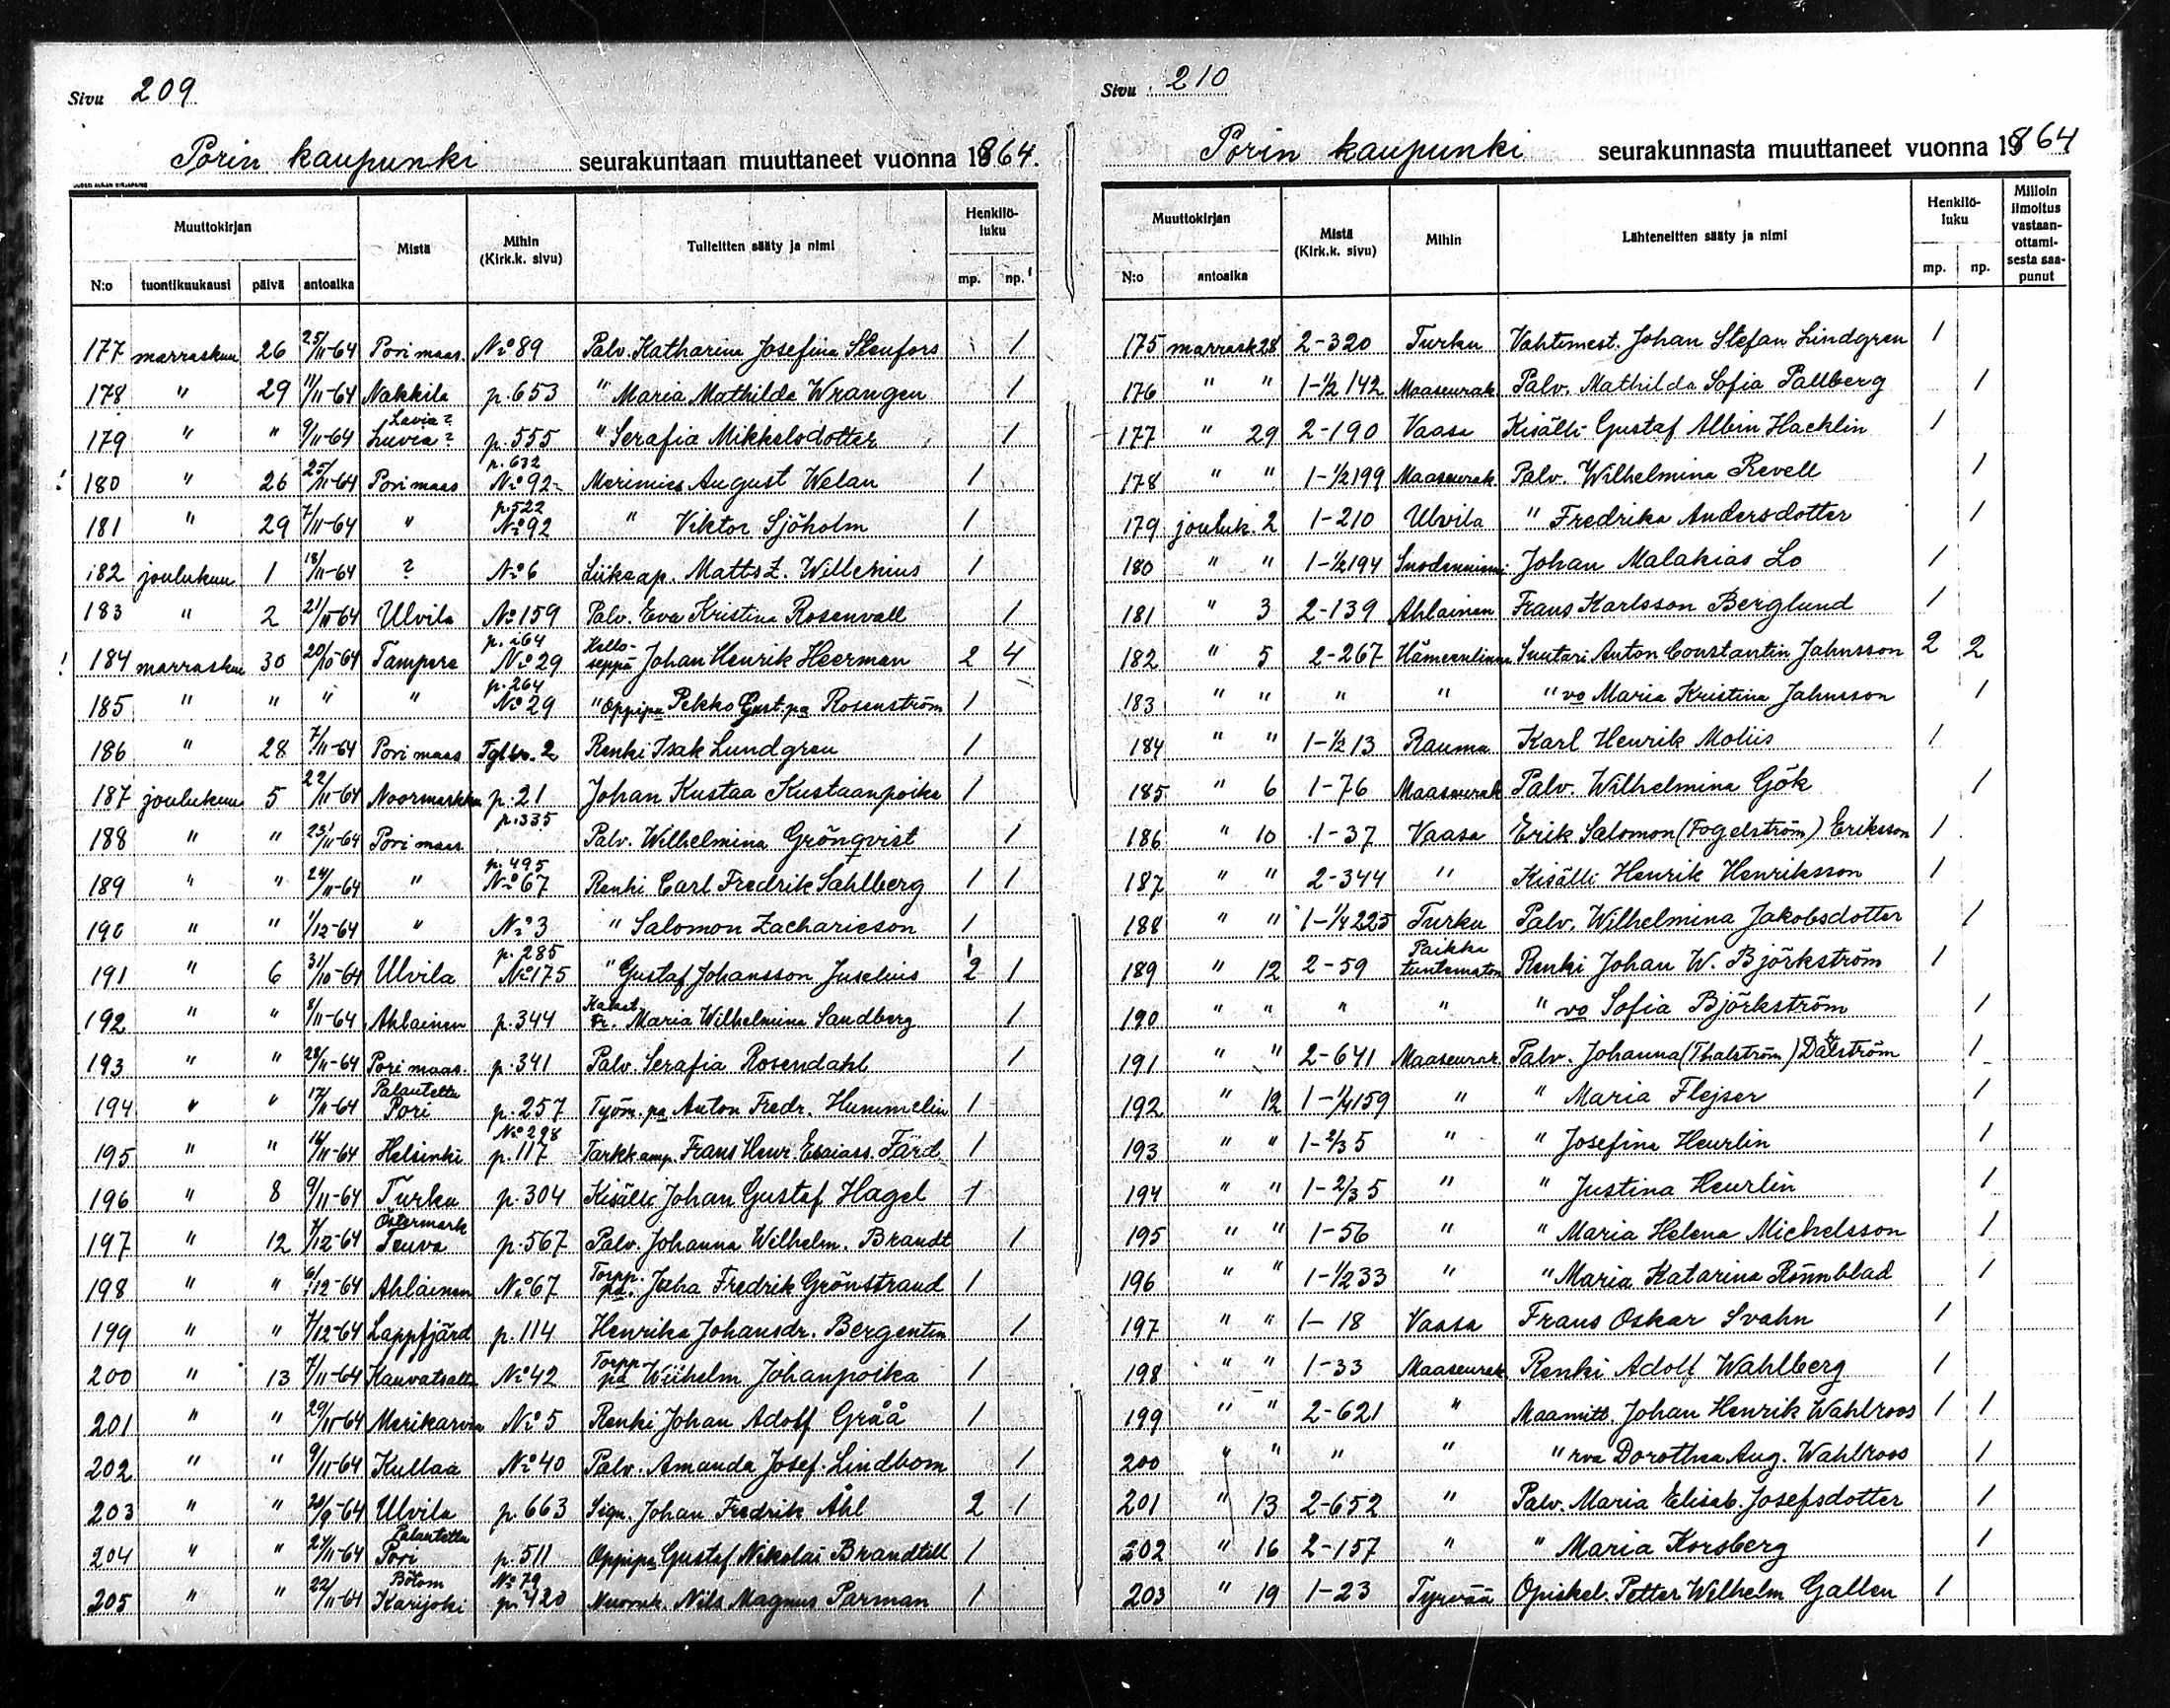 Sivu 209
Porin kaupunki seurakuntaan muuttaneet vuonna 1864.
Muuttokirjan Mistä Mihin (Kirk.k. sivu) Tulleitten sääty ja nimi Henkilöluku
N:o tuontikuukausi päivä antoaika mp. np.
177 marraskuu 26 25/11-64 Pori maas. No 89 Palv. Katharina Josefina Stenfors 1
178 " 29 11/11-64 Nakkila p. 653 " Maria Mathilda Wrangen 1
Lavia?
179 " " 9/11-64 Luvia? p. 555 " Serafia Mikkelsdotter 1
p. 632
! 180 " 26 25/11-64 Pori maas No 92 Merimies August Welan 1
p. 522
181 " 29 7/11-64 " No 92 " Viktor Sjöholm 1
182 joulukuu 1 18/11-64 ? No 6 Liikeap. Matts Z. Willenius 1
183 " 2 21/11-64 Ulvila No 159 Palv. Eva Kristina Rosenvall 1
p. 264 Kello-
! 184 marraskuu 30 20/10-64 Tampere No 29 seppä Johan Henrik Heerman 2 4
p. 264
185 " " " " No 29 " Oppipa Pekko Gust.pa Rosenström 1
186 " 28 7/11-64 Pori maas 2 Renki Isak Lundgren 1
187 joulukuu 5 22/11-64 Noormarkku p. 21 Johan Kustaa Kustaanpoika 1
p. 335
188 " " 23/11-64 Pori maas Palv. Wilhelmina Grönqvist 1
p. 495
189 " " 24/11-64 " No 67 Renki Carl Fredrik Sahlberg 1 1
190 " " 1/12-64 " No 3 " Salomon Zachariesson 1
p. 285
191 " 6 31/10-64 Ulvila No 175 " Gustaf Johansson Juselius 2 1
192 " " 8/11-64 Ahlainen p. 344 Fr. Maria Wilhelmina Sandberg 1
193 " " 28/11-64 Pori maas. p. 341 Palv. Serafia Rosendahl 1
Palautettu
194 " " 17/11-64 Pori p. 257 Työm. pa Anton Fredr. Hummelin 1
No 298
195 " " 14/11-64 Helsinki p. 117 Tarkkamp. Frans Henr. Esaiass. Färd 1
196 " 8 9/11-64 Turku p. 304 Kisälli Johan Gustaf Hagel 1
Östermark
197 " 12 7/12-64 Teuva p. 567 Palv. Johanna Wilhelm. Brandt 1
Torpp.
198 " " 6/12-64 Ahlainen No 67 pa. Juha Fredrik Grönstrand 1
199 " " 7/12-64 Lappfjärd p. 114 Henrika Johansdr. Bergenten 1
Torpp.
200 " 13 7/11-64 Kauvatsalta No 42 pa Wilhelm Johanpoika 1
201 " " 29/11-64 Merikarvia No 5 Renki Johan Adolf Gråå 1
202 " " 9/11-64 Kullaa No 40 Palv. Amanda Josef. Lindbom 1
203 " " 20/9-64 Ulvila p. 663 Sign. Johan Fredrik Åhl 2 1
Palautettu
204 " " 24/11-64 Pori p. 511 Oppipa Gustaf Nikolai Brandtill 1
Bötom No 79
205 " " 22/11-64 Karijoki p. 420 Nuoruk. Nils Magnus Parman 1
Sivu 210
Porin kaupunki seurakunnasta muuttaneet vuonna 1864
Muuttokirjan Mistä (Kirk.k. sivu) Mihin Lähteneitten sääty ja nimi Henkilöluku Milloin ilmoitus vastaanottamisesta saapunut
N:o antoaika mp. np.
175 marrask 28 2-320 Turku Vahtimest. Johan Stefan Lindgren 1
176 " " 1-1/2 142 Maaseurak Palv. Mathilda Sofia Pallberg 1
177 " 29 2-190 Vaasa Kisälli Gustaf Albin Hacklin 1
178 " " 1-1/2 199 Maaseurak. Palv. Wilhelmina Revell 1
179 jouluk. 2 1-210 Ulvila " Fredrika Andersdotter 1
180 " " 1-1/2 194 Suodenniemi Johan Malakias Lo 1
181 " 3 2-139 Ahlainen Frans Karlsson Berglund 1
182 " 5 2-267 Hämeenlinna Suutari Anton Constantin Jahnsson 2 2
183 " " " " " vo Maria Kristina Jahnsson 1
184 " " 1-1/2 13 Rauma Karl Henrik Moliis 1
185 " 6 1-76 Maaseurak Palv. Wilhelmina Gök 1
186 " 10 1-37 Vaasa Erik Salomon (Fogelström) Eriksson 1
187 " " 2-344 " Kisälli Henrik Henriksson 1
188 " " 1-1/4 225 Turku Palv. Wilhelmina Jakobsdotter 1
Paikka
189 " 12 2-59 tuntematon Renki Johan W. Björkström 1
190 " " " " " vo Sofia Björkström 1
191 " " 2-641 Maaseurak. Palv. Johanna (Thalström) Dalström 1
192 " 12 1-1/4 159 " " Maria Flejser 1
193 " " 1-2/3 5 " " Josefina Heurlin 1
194 " " 1-2/3 5 " " Justina Heurlin 1
195 " " 1-56 " " Maria Helena Michelsson 1
196 " " 1-1/2 33 " " Maria Katarina Rönnblad 1
197 " " 1-18 Vaasa Frans Oskar Svahn 1
198 " " 1-33 Maaseurak Renki Adolf Wahlberg 1
199 " " 2-621 " Maamitt. Johan Henrik Wahlroos 1 1
200 " " " " " rva Dorothea Aug. Wahlroos 1
201 " 13 2-652 " Palv. Maria Elisab. Josefsdotter 1
202 " 16 2-157 " " Maria Korsberg 1
203 " 19 1-23 Tyrvää Opiskel. Petter Wilhelm Gallen 1